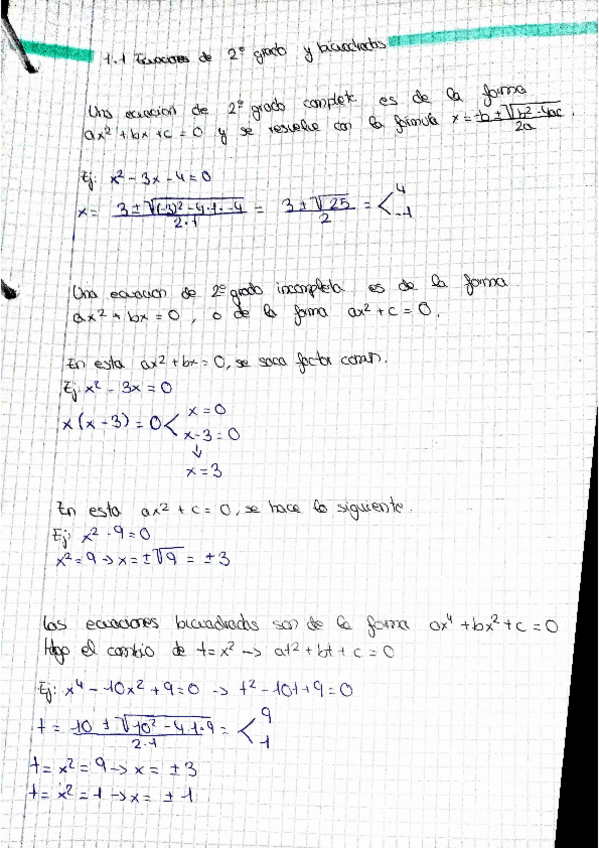 1.1 Ecuaciones de 2º grado y bicuadradas
Una ecuación de 2º grado completa es de la forma
ax² + bx + c = 0 y se resuelve con la fórmula x = -b ± √b² - 4ac / 2a.
Ej: x² - 3x - 4 = 0
x = 3 ± √(-3)² - 4·1·-4 / 2·1 = 3 ± √25 / 2 = < 4 -1
Una ecuación de 2º grado incompleta es de la forma
ax² + bx = 0, o de la forma ax² + c = 0.
En esta ax² + bx = 0, se saca factor común.
Ej: x² - 3x = 0
x(x - 3) = 0 < x = 0
x - 3 = 0
↓
x = 3
En esta ax² + c = 0, se hace lo siguiente.
Ej: x² - 9 = 0
x² = 9 -> x = ± √9 = ± 3
Las ecuaciones bicuadradas son de la forma ax⁴ + bx² + c = 0
Hago el cambio de t = x² -> at² + bt + c = 0
Ej: x⁴ - 10x² + 9 = 0 -> t² - 10t + 9 = 0
t = 10 ± √10² - 4·1·9 / 2·1 = < 9 1
t = x² = 9 -> x = ± 3
t = x² = 1 -> x = ± 1